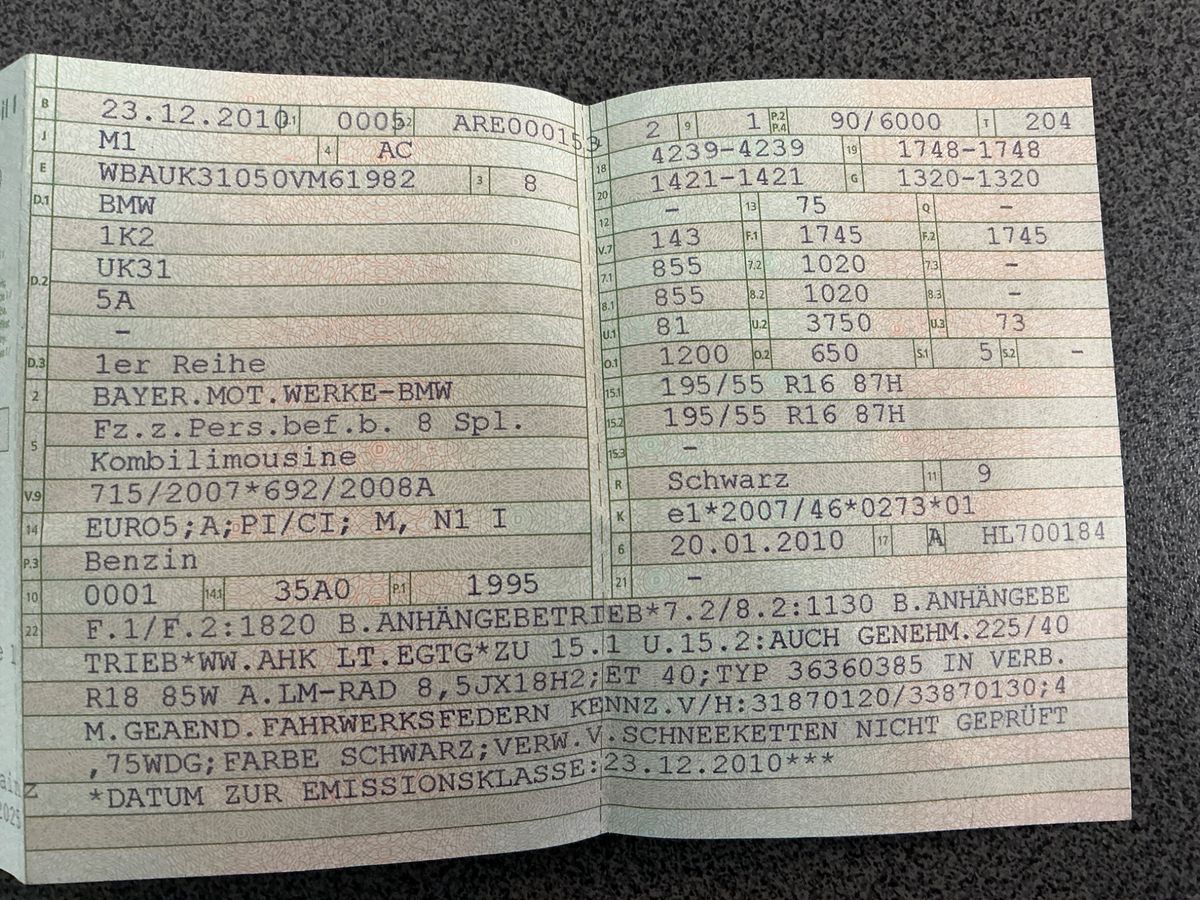 B 23.12.2010 2.1 0005 2.2 ARE000153
J M1 4 AC
E WBAUK31050VM61982 3 8
D.1 BMW
1K2
D.2 UK31
5A
–
D.3 1er Reihe
2 BAYER.MOT.WERKE-BMW
Fz.z.Pers.bef.b. 8 Spl.
5 Kombilimousine
V.9 715/2007*692/2008A
14 EURO5;A;PI/CI; M, N1 I
P.3 Benzin
10 0001 14.1 35A0 P.1 1995
2 9 1 P.2 P.4 90/6000 T 204
18 4239-4239 19 1748-1748
20 1421-1421 G 1320-1320
12 – 13 75 Q –
V.7 143 F.1 1745 F.2 1745
7.1 855 7.2 1020 7.3 –
8.1 855 8.2 1020 8.3 –
U.1 81 U.2 3750 U.3 73
O.1 1200 O.2 650 S.1 5 S.2 –
15.1 195/55 R16 87H
15.2 195/55 R16 87H
15.3 –
R Schwarz 11 9
K e1*2007/46*0273*01
6 20.01.2010 17 A HL700184
21 –
22 F.1/F.2:1820 B.ANHÄNGEBETRIEB*7.2/8.2:1130 B.ANHÄNGEBE
TRIEB*WW.AHK LT.EGTG*ZU 15.1 U.15.2:AUCH GENEHM.225/40
R18 85W A.LM-RAD 8,5JX18H2;ET 40;TYP 36360385 IN VERB.
M.GEAEND.FAHRWERKSFEDERN KENNZ.V/H:31870120/33870130;4
,75WDG;FARBE SCHWARZ;VERW.V.SCHNEEKETTEN NICHT GEPRÜFT
*DATUM ZUR EMISSIONSKLASSE:23.12.2010***